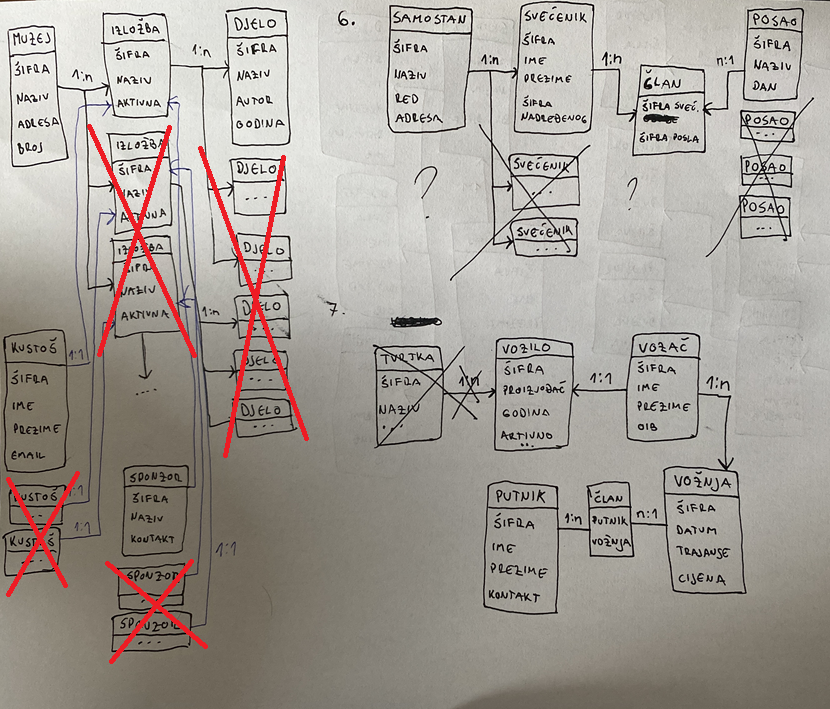 MUZEJ
ŠIFRA
NAZIV
ADRESA
BROJ
1:n
IZLOŽBA
ŠIFRA
NAZIV
AKTIVNA
1:n
DJELO
ŠIFRA
NAZIV
AUTOR
GODINA
IZLOŽBA
ŠIFRA
NAZIV
AKTIVNA
IZLOŽBA
ŠIFRA
NAZIV
AKTIVNA
....
DJELO
...
DJELO
...
1:n
DJELO
...
DJELO
...
DJELO
...
KUSTOŠ
ŠIFRA
IME
PREZIME
EMAIL
1:1
KUSTOŠ
...
1:1
KUSTOŠ
...
1:1
SPONZOR
ŠIFRA
NAZIV
KONTAKT
SPONZOR
...
SPONZOR
...
1:1
6.
SAMOSTAN
ŠIFRA
NAZIV
RED
ADRESA
1:n
SVEĆENIK
ŠIFRA
IME
PREZIME
ŠIFRA
NADREĐENOG
1:n
ČLAN
ŠIFRA SVEĆ.
ŠIFRA POSLA
n:1
POSAO
ŠIFRA
NAZIV
DAN
POSAO
...
POSAO
...
POSAO
...
SVEĆENIK
...
SVEĆENIK
...
?
?
7.
TVRTKA
ŠIFRA
NAZIV
...
1:n
VOZILO
ŠIFRA
PROIZVOĐAČ
GODINA
AKTIVNO
...
1:1
VOZAČ
ŠIFRA
IME
PREZIME
OIB
1:n
PUTNIK
ŠIFRA
IME
PREZIME
KONTAKT
1:n
ČLAN
PUTNIK
VOŽNJA
n:1
VOŽNJA
ŠIFRA
DATUM
TRAJANJE
CIJENA